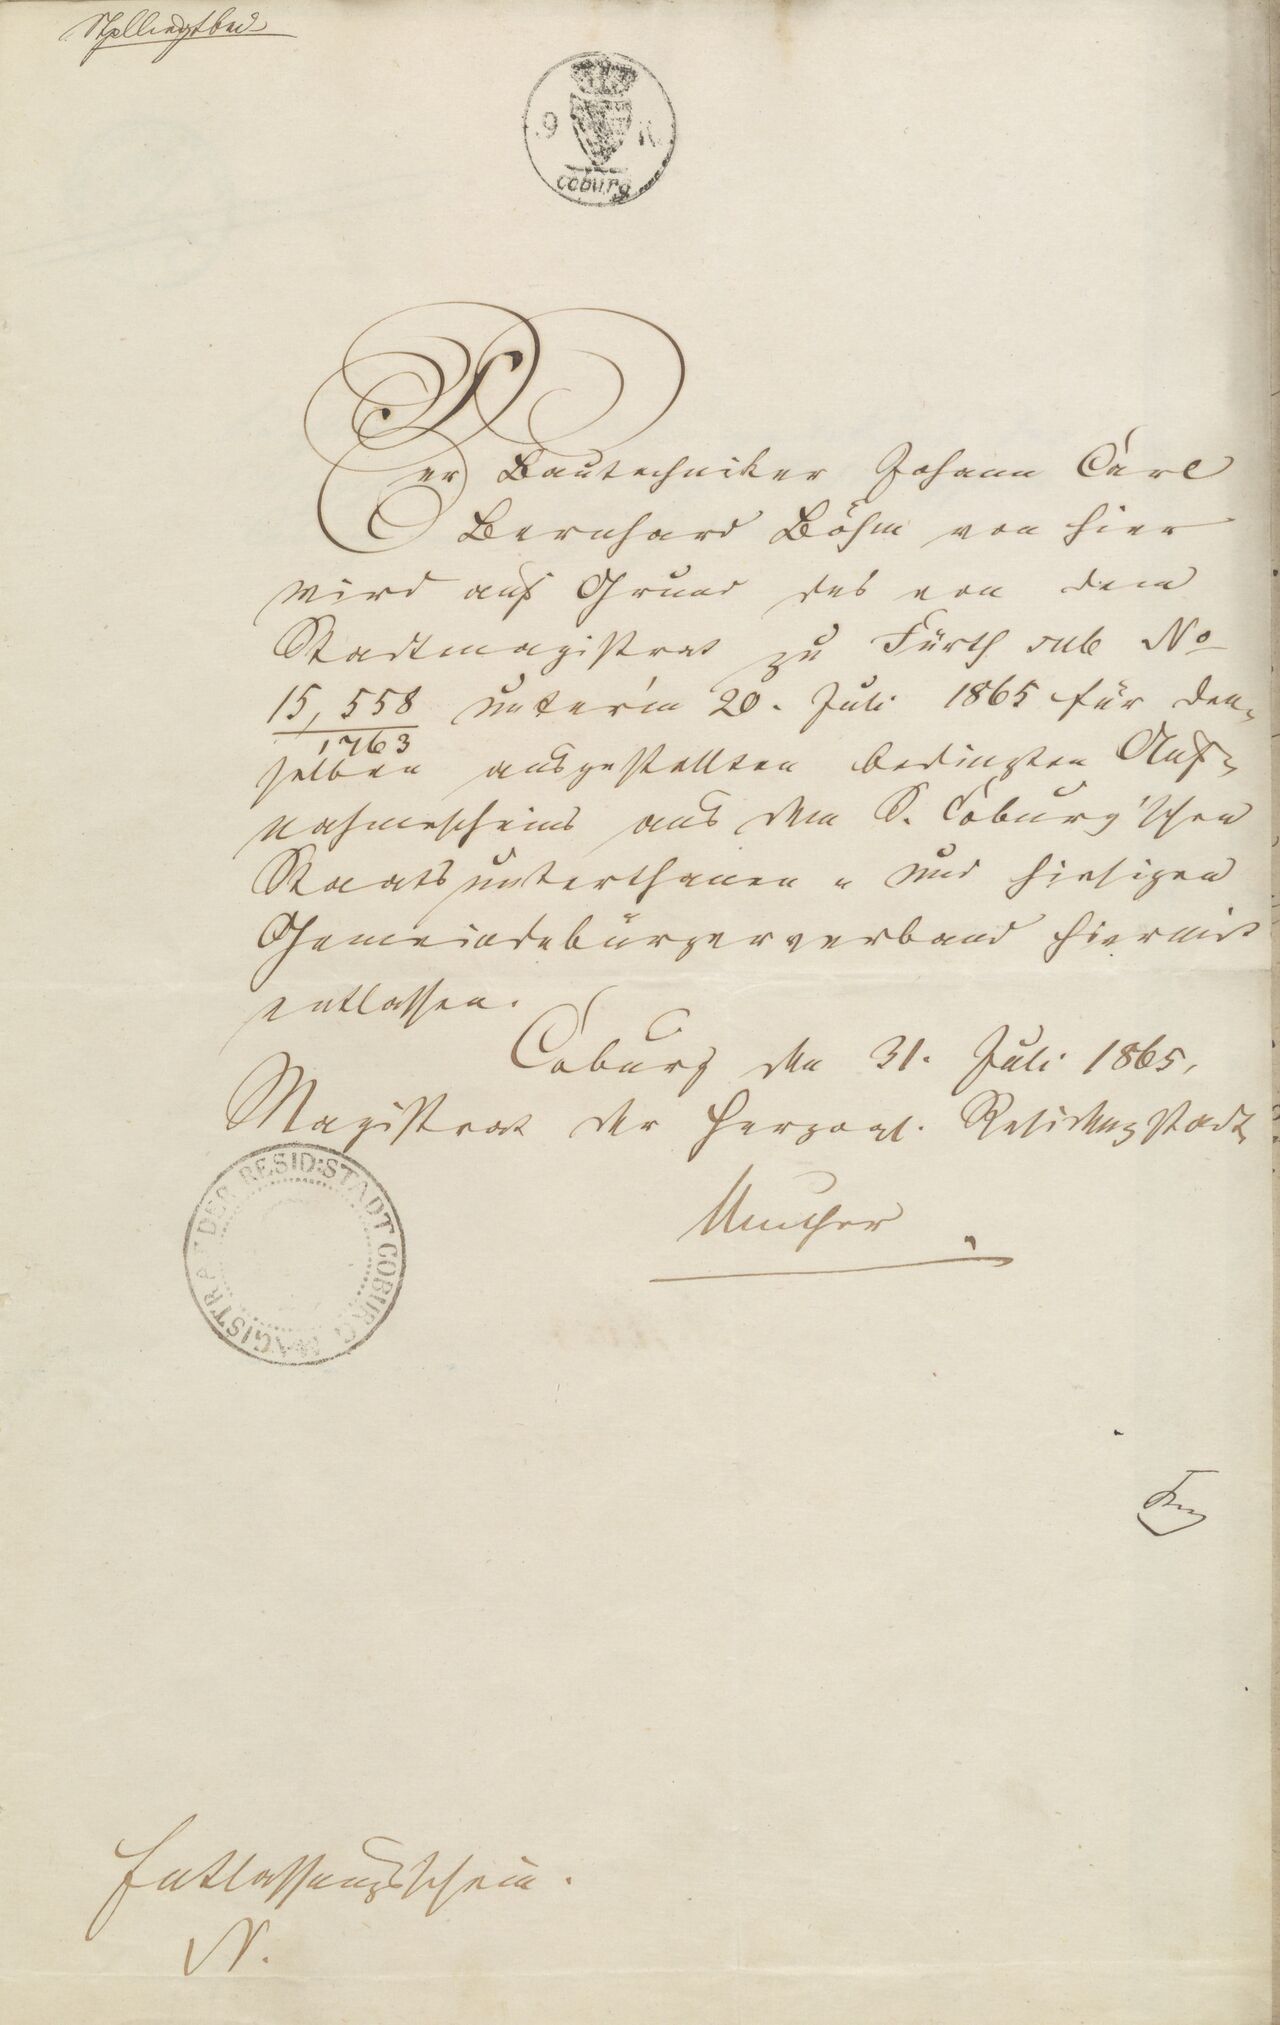 9 K.
coburg
Der Bautechniker Johann Carl
Bernhard Böhm von hier
wird auf Grund des von dem
Stadtmagistrat zu Fürth sub No
15,558
1763 unterm 20. Juli 1865 für den-
selben ausgestellten bedingten Auf-
nahmescheins aus dem S. Coburg'schen
Staatsunterthanen- und hiesigen
Gemeindebürgerverband hiermit
entlassen.
Coburg den 31. Juli 1865.
Magistrat der Herzogl. Residenzstadt
MAGISTRAT DER RESID:STADT COBURG
Muther
Entlassungsschein.
N.